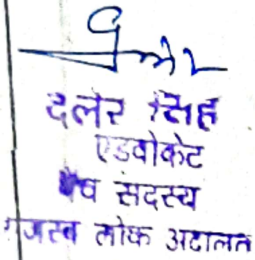 दलेर सिंह
एडवोकेट
पैंच सदस्य
राजस्व लोक अदालत